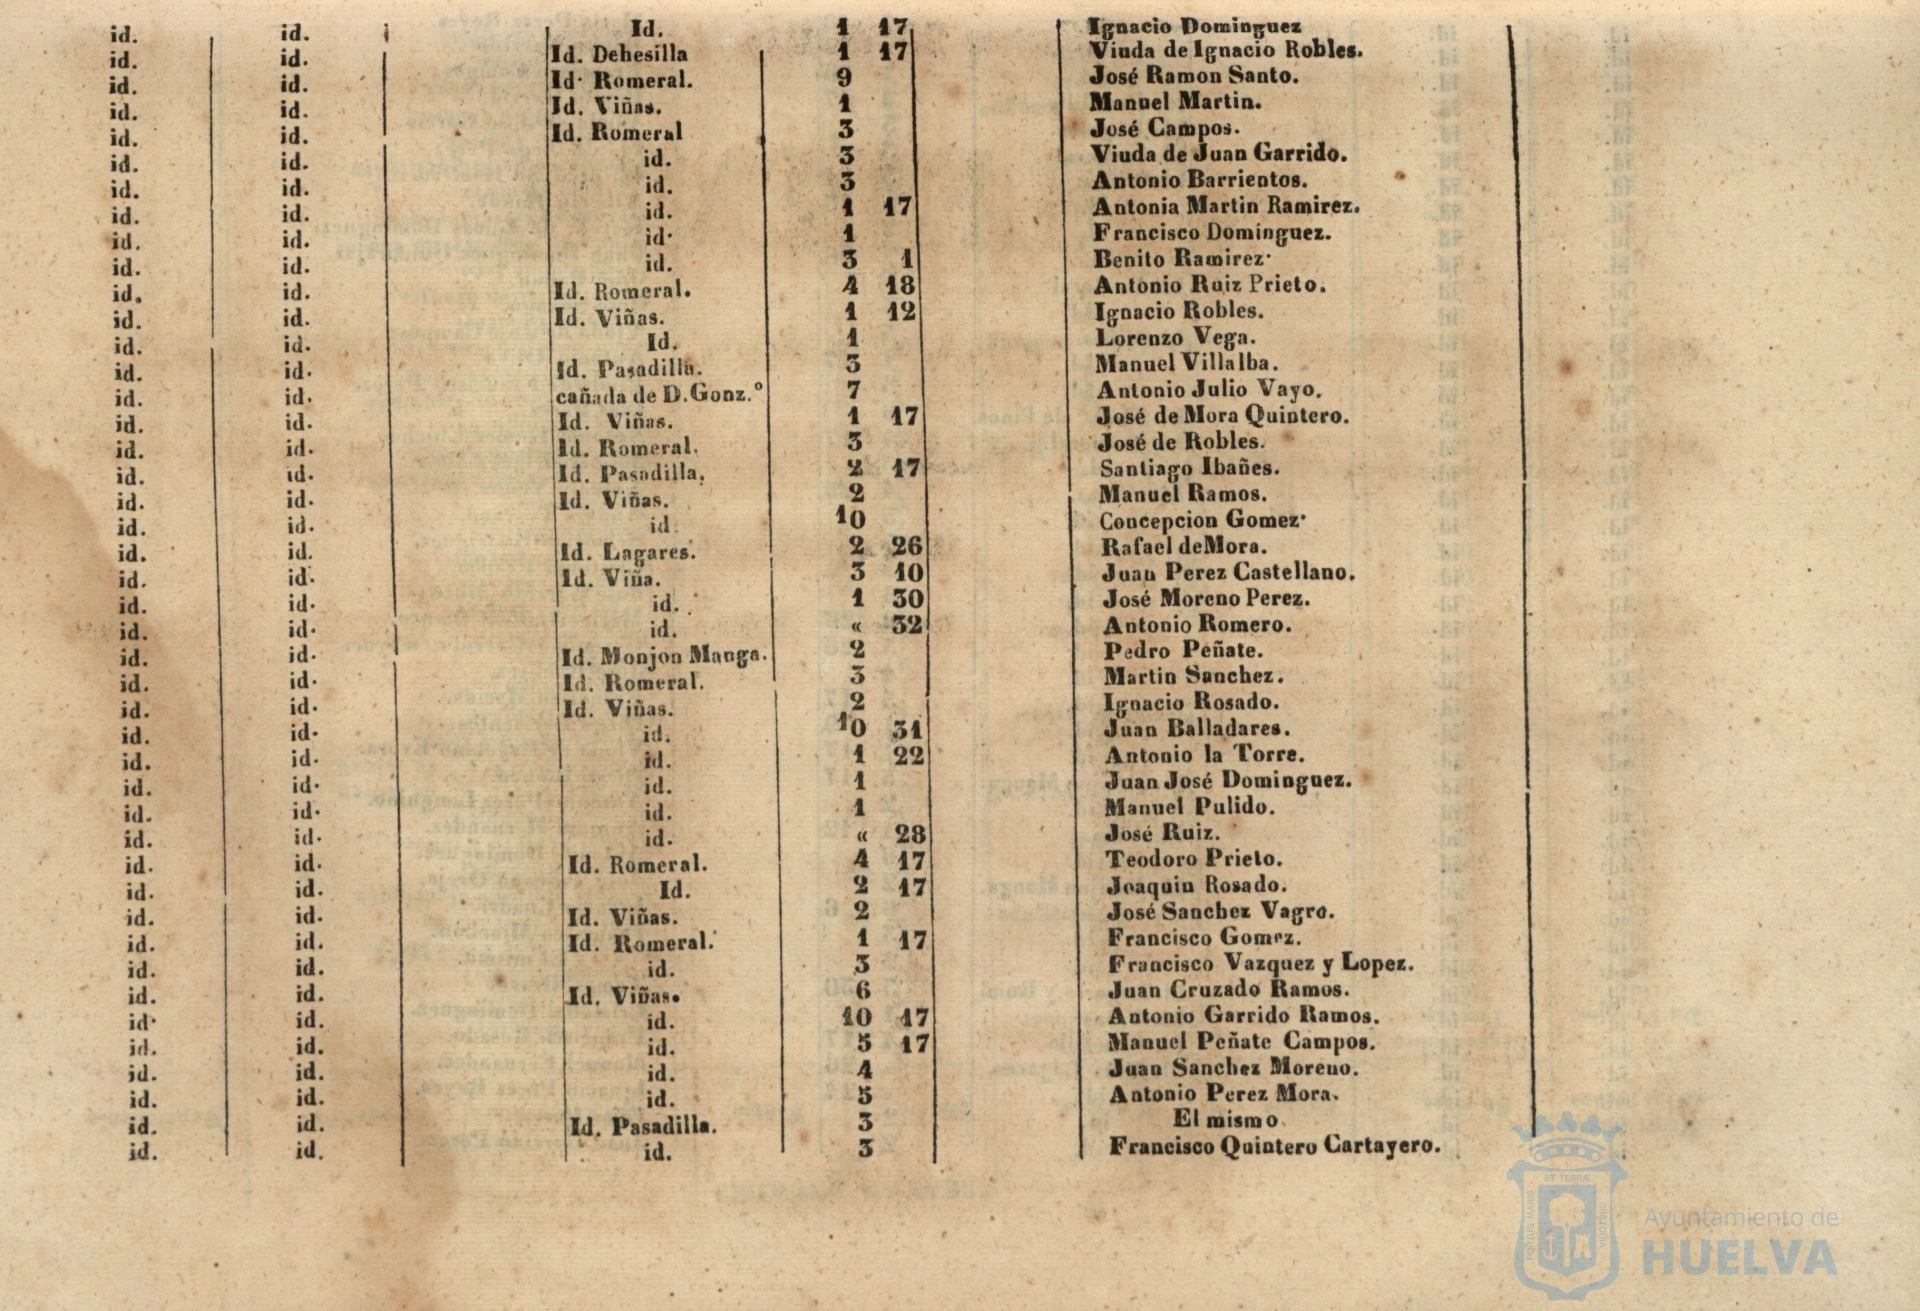 id. id. Id. 1 17 Ignacio Dominguez
id. id. Id. Dehesilla 1 17 Viuda de Ignacio Robles.
id. id. Id. Romeral. 9 José Ramon Santo.
id. id. Id. Viñas. 1 Manuel Martin.
id. id. Id. Romeral 3 José Campos.
id. id. id. 3 Viuda de Juan Garrido.
id. id. id. 3 Antonio Barrientos.
id. id. id. 1 17 Antonia Martin Ramirez.
id. id. id. 1 Francisco Dominguez.
id. id. id. 3 1 Benito Ramirez.
id. id. Id. Romeral. 4 18 Antonio Ruiz Prieto.
id. id. Id. Viñas. 1 12 Ignacio Robles.
id. id. Id. 1 Lorenzo Vega.
id. id. Id. Pasadilla. 3 Manuel Villalba.
id. id. cañada de D. Gonz.º 7 Antonio Julio Vayo.
id. id. Id. Viñas. 1 17 José de Mora Quintero.
id. id. Id. Romeral. 3 José de Robles.
id. id. Id. Pasadilla. 2 17 Santiago Ibañes.
id. id. Id. Viñas. 2 Manuel Ramos.
id. id. id. 10 Concepcion Gomez.
id. id. Id. Lagares. 2 26 Rafael deMora.
id. id. Id. Viña. 3 10 Juan Perez Castellano.
id. id. id. 1 30 José Moreno Perez.
id. id. id. « 32 Antonio Romero.
id. id. Id. Monjon Manga. 2 Pedro Peñate.
id. id. Id. Romeral. 3 Martin Sanchez.
id. id. Id. Viñas. 2 Ignacio Rosado.
id. id. id. 10 31 Juan Balladares.
id. id. id. 1 22 Antonio la Torre.
id. id. id. 1 Juan José Dominguez.
id. id. id. 1 Manuel Pulido.
id. id. id. « 28 José Ruiz.
id. id. Id. Romeral. 4 17 Teodoro Prieto.
id. id. Id. 2 17 Joaquin Rosado.
id. id. Id. Viñas. 2 José Sanchez Vagro.
id. id. Id. Romeral. 1 17 Francisco Gomez.
id. id. id. 3 Francisco Vazquez y Lopez.
id. id. Id. Viñas. 6 Juan Cruzado Ramos.
id. id. id. 10 17 Antonio Garrido Ramos.
id. id. id. 5 17 Manuel Peñate Campos.
id. id. id. 4 Juan Sanchez Moreno.
id. id. id. 5 Antonio Perez Mora.
id. id. Id. Pasadilla. 3 El mismo
id. id. id. 3 Francisco Quintero Cartayero.
ET TERRÆ
PORTUS MARIS
CUSTODIA
Ayuntamiento de
HUELVA